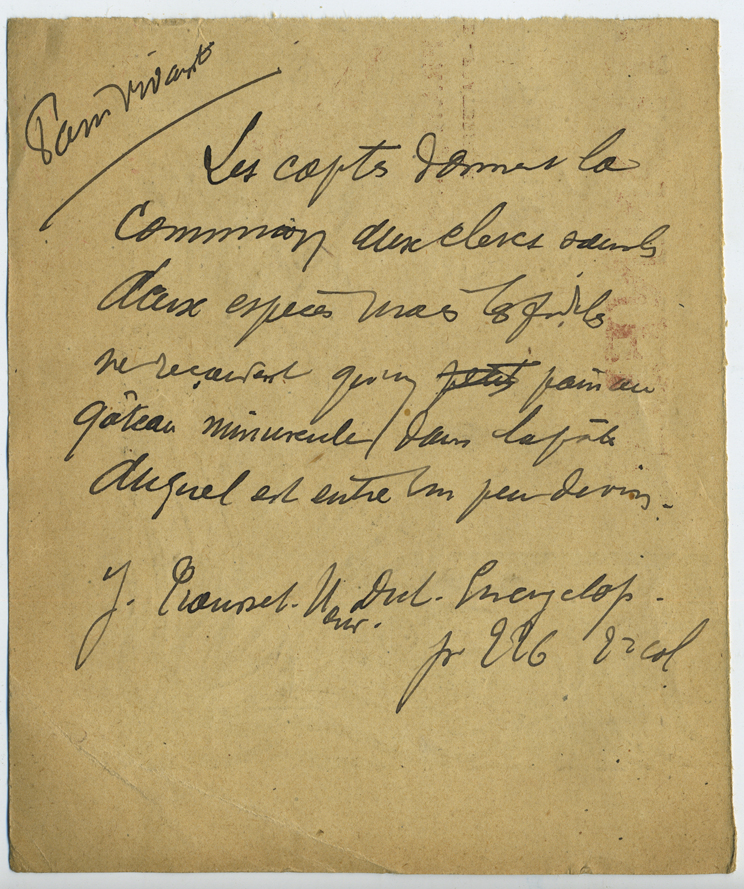 Pain vivant
Les coptes donnent la
Communion aux clercs sous les
deux espèces mais les fidèles
ne reçoivent qu'un petit pain ou
gâteau minuscule dans la pâte
duquel est entré un peu de vin.
J. Trousset. Nouv. Dict. Encyclop.
p. 226 2e col